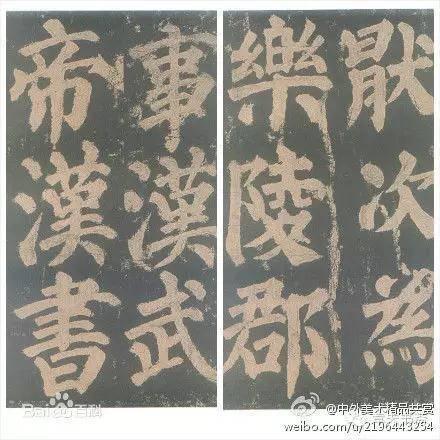 猒次為
樂陵郡
事漢武
帝漢書
Baidu百科
@中外美术精品共赏
weibo.com/u/2196443254